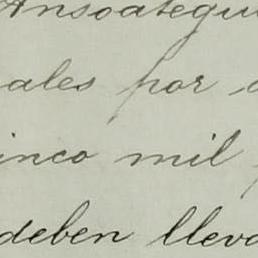 Ansoategui
ales por
inco mil
deben lleva